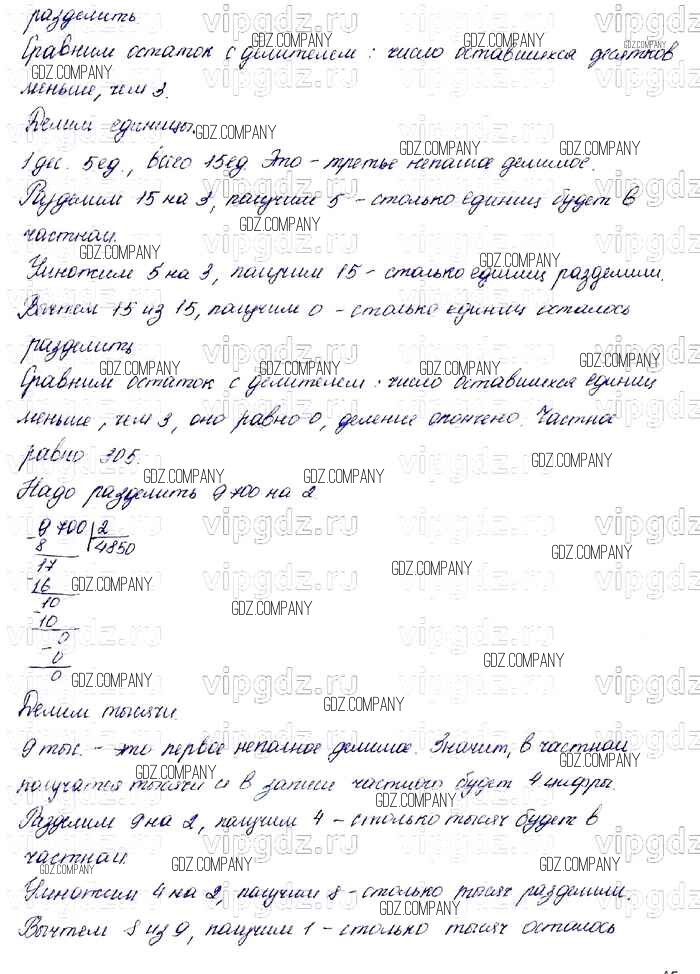 разделить
Сравним остаток с делителем: число оставшихся десятков
меньше, чем 3.
Делим единицы.
1 дес. 5 ед., всего 15 ед. Это - третье неполное делимое.
Разделим 15 на 3, получим 5 - столько единиц будет в
частном.
Умножим 5 на 3, получим 15 - столько единиц разделили.
Вычтем 15 из 15, получим 0 - столько единиц осталось
разделить
Сравним остаток с делителем: число оставшихся единиц
меньше, чем 3, оно равно 0, деление окончено. Частное
равно 305.
Надо разделить 9 700 на 2
9 700 2
- 8 4850
17
- 16
10
- 10
0
- 0
0
Делим тысячи.
9 тыс. - это первое неполное делимое. Значит, в частном
получатся тысячи и в записи частного будет 4 цифры.
Разделим 9 на 2, получим 4 - столько тысяч будет в
частном.
Умножим 4 на 2, получим 8 - столько тысяч разделили.
Вычтем 8 из 9, получим 1 - столько тысяч осталось